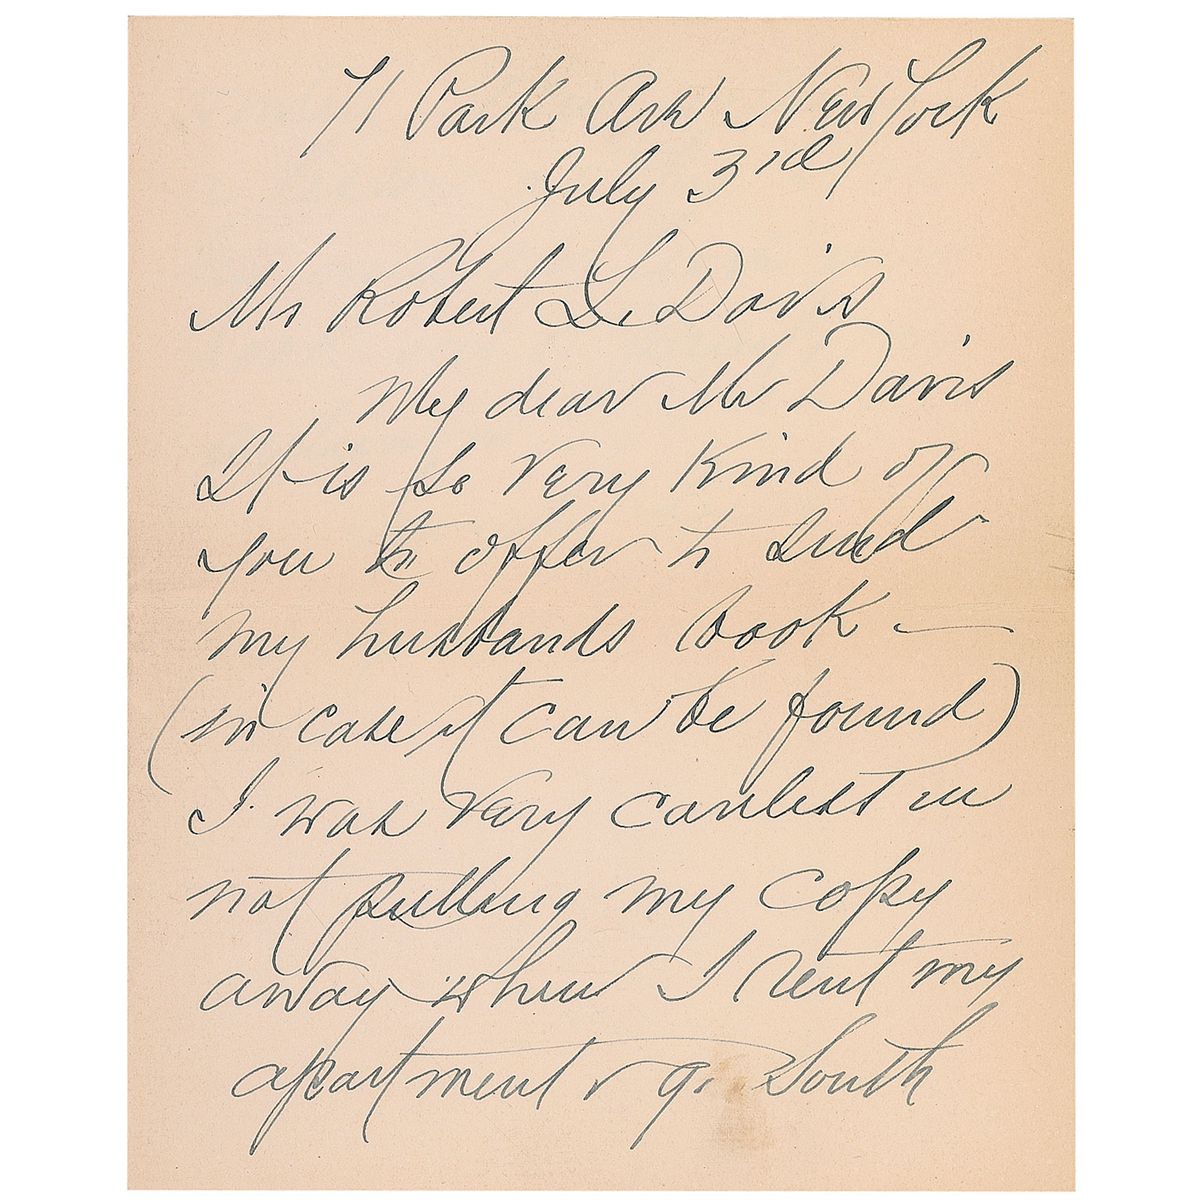 71 Park Ave New York
July 3rd
Mr Robert L. Davis
My dear Mr Davis
It is so very kind of
you to offer to send
my husbands book —
(in case it can be found)
I was very careless in
not putting my copy
away when I rent my
apartment & go South